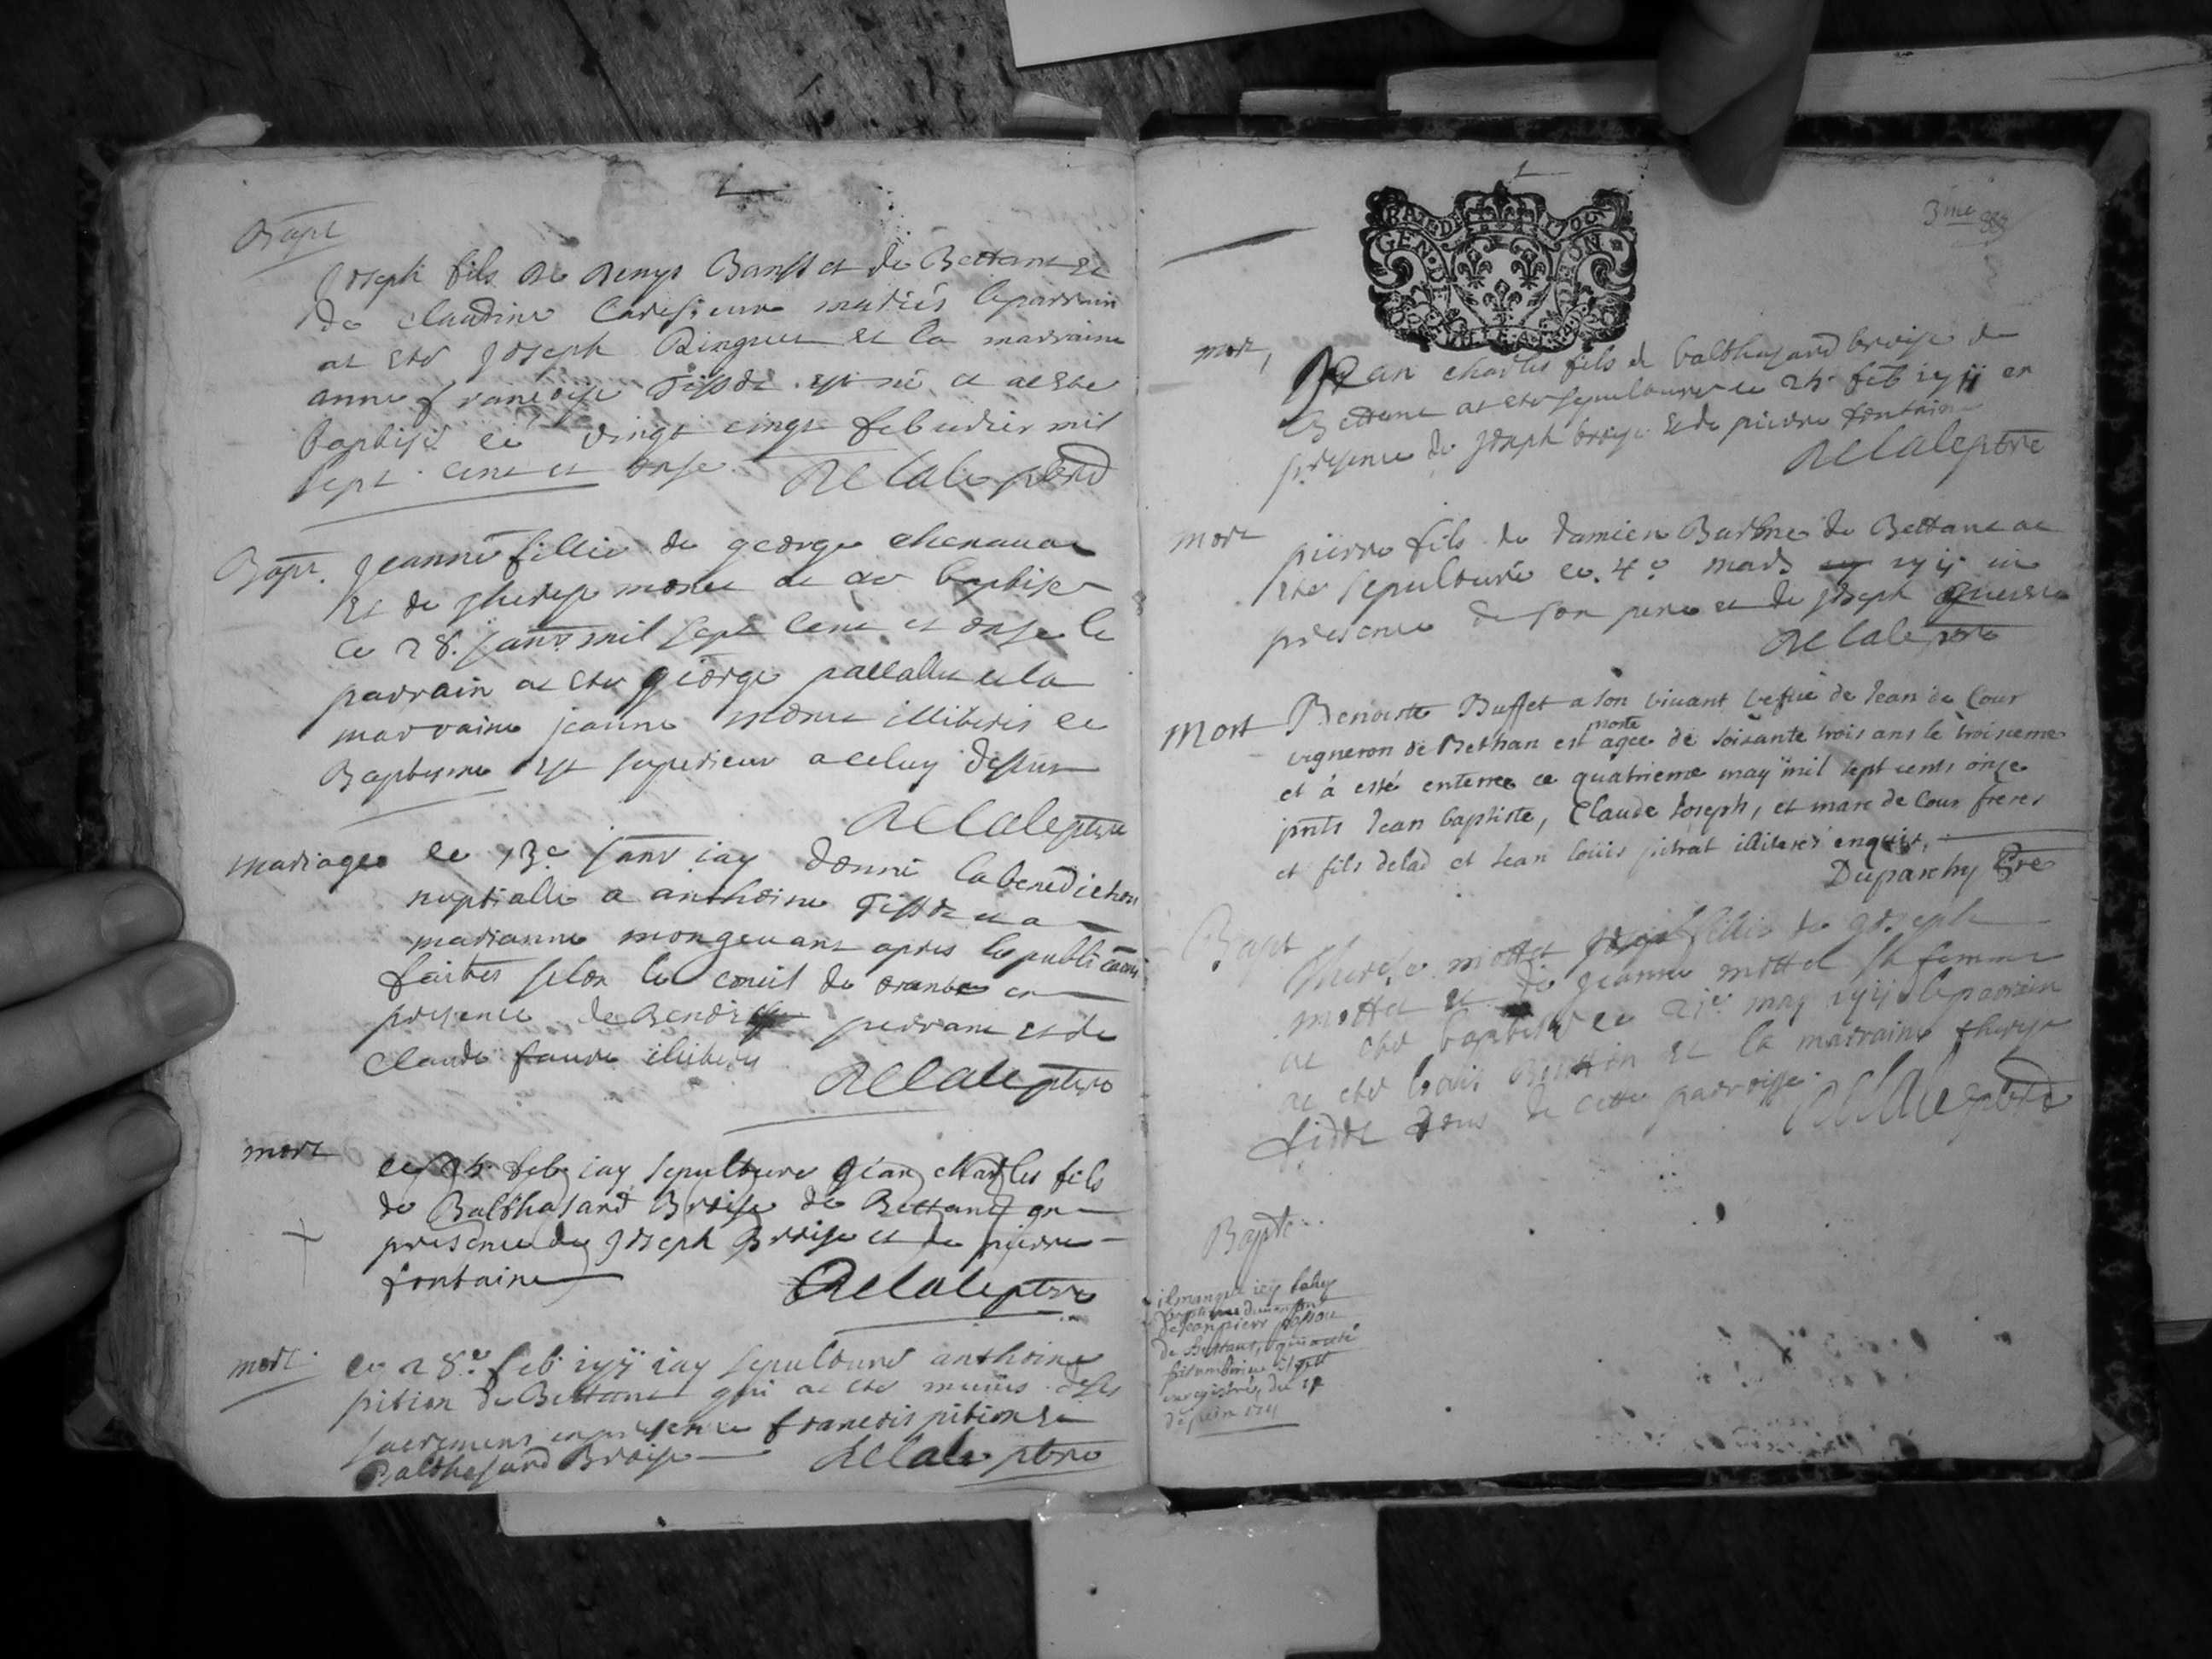 Bapt
Joseph fils de Denys Banset de Bettant et
de claudine mariés le parrain
at este Joseph Ringuet et la marraine
anne francoise Tissot est né et at este
baptisé ce vingt cinq februier mil
sept cent et onse Relale ptre
Bapt. Jeanne fillie de george chenauat
et de therese monet at este baptisee
ce 28. janv mil sept cent et onse le
parrain at este george pallallu et la
marraine jeanne monet illiteris ce
Baptesme est superieur a celuy dessus
Relale ptre
mariage ce 13e janv iay donné la benediction
nuptialle a anthoine Tissot et a
marianne mongeuant apres les publicaons
faites selon le concil de trante en
presence de perrant et de
claude faure illiteris
Relale ptre
mort ce 24 feb iay sepulture Jean charles fils
de Balthasard Broise de Bettant en
presence de Joseph Broise et de pierre
fontaine Relale ptre
mort ce 28e feb 1711 iay sepulturé anthoine
pition de Bettant qui at este munis de ses
sacremens en presence francois pition et
Balthasard Broise Relale ptre
3me
GEN. DE LION
mort, Jean charles fils de balthasard broise de
Bettant at este sepulturé ce 24 feb 1711 en
presence de Joseph broise et de pierre fontaine
Relale ptre
mort pierre fils de damien Barbier de Bettant at
este sepulturé ce 4e mars 1711 en
presence de son pere et de Joseph
Relale ptre
Mort Benoiste Buffet a son vivant vefue de Jean de Cour
vigneron de Bethan est morte agee de soixante trois ans le troisieme
et à esté enterree ce quatrieme may mil sept cents onze
pnts Jean baptiste, Claude Joseph, et marc de Cour freres
et fils delad et Jean loüis pitrat illiterés enquis,
Duparchy Ptre
Bapt
Therese mottet fillie de Joseph
mottet et de Jeanne mottet sa femme
at esté baptisée ce 21e may 1711 le parrain
at esté louis et la marraine therese
tous de cette parroisse Relale ptre
Bapt.
il manque icy
de Jean pierre
de Bettant, qui a esté
enregistré, du 17
de juin 1711